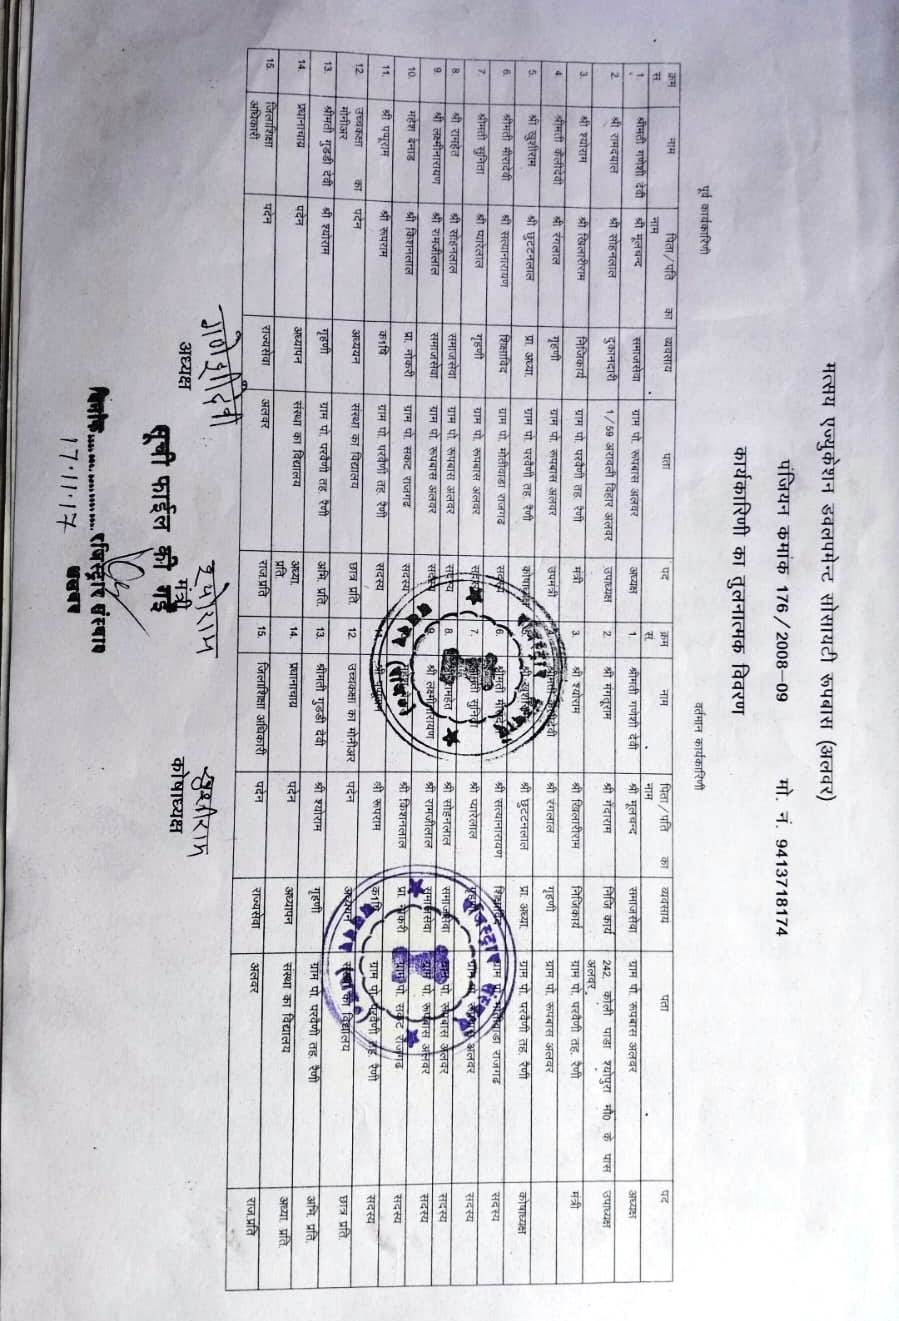 मत्सय एज्युकेशन डवलपमेन्ट सोसायटी रूपबास (अलवर)
पंजियन कमांक 176/2008–09 मो. नं. 9413718174
कार्यकारिणी का तुलनात्मक विवरण
पूर्व कार्यकारिणी वर्तमान कार्यकारिणी
क्रम सं. नाम पिता/पति का नाम व्यवसाय पता पद क्रम सं. नाम पिता/पति का नाम व्यवसाय पता पद
1. श्रीमती गणेशी देवी श्री मूलचन्द समाजसेवा ग्राम पो. रूपबास अलवर अध्यक्ष 1. श्रीमती गणेशी देवी श्री मूलचन्द समाजसेवा ग्राम पो. रूपबास अलवर अध्यक्ष
2. श्री रामदयाल श्री सोहनलाल दुकानदारी 1/59 अरावली विहार अलवर उपाध्यक्ष 2. श्री मंगूराम श्री गेंदाराम निजि कार्य 242, कोली पाडा श्योपुरा मौ0 के पास अलवर उपाध्यक्ष
3. श्री श्योराम श्री खिलारीराम निजिकार्य ग्राम पो. परवैणी तह. रैणी मंत्री 3. श्री श्योराम श्री खिलारीराम निजिकार्य ग्राम पो. परवैणी तह. रैणी मंत्री
4. श्रीमती कैलीदेवी श्री रंगलाल गृहणी ग्राम पो. रूपबास अलवर उपमंत्री श्री रंगलाल गृहणी ग्राम पो. रूपबास अलवर
5. श्री खुशीराम श्री छुटटनलाल प्रा. अध्या. ग्राम पो. परवैणी तह. रैणी कोषाध्यक्ष श्री छुटटनलाल प्रा. अध्या. ग्राम पो. परवैणी तह. रैणी कोषाध्यक्ष
6. श्रीमती मीरादेवी श्री सत्यानारायण शिक्षाविद ग्राम पो. मोतीवाडा राजगढ सदस्य 6. श्रीमती मीरादेवी श्री सत्यानारायण शिक्षाविद ग्राम पो. मोतीवाडा राजगढ सदस्य
7. श्रीमती सुनिता श्री प्यारेलाल गृहणी ग्राम पो. रूपबास अलवर सदस्य 7. श्रीमती सुनिता श्री प्यारेलाल गृहणी ग्राम पो. रूपबास अलवर सदस्य
8. श्री रामहेत श्री सोहनलाल समाजसेवा ग्राम पो. रूपबास अलवर सदस्य 8. श्री रामहेत श्री सोहनलाल समाजसेवा ग्राम पो. रूपबास अलवर सदस्य
9. श्री लक्ष्मीनारायण श्री रामजीलाल समाजसेवा ग्राम पो. रूपबास अलवर सदस्य 9. श्री लक्ष्मीनारायण श्री रामजीलाल समाजसेवा ग्राम पो. रूपबास अलवर सदस्य
10. महेश बैनाड श्री किशनलाल प्रा. नोकरी ग्राम पो. सकट राजगढ सदस्य श्री किशनलाल प्रा. नोकरी ग्राम पो. सकट राजगढ सदस्य
11. श्री पपूराम श्री रूपराम क1षि ग्राम पो. परवैणी तह. रैणी सदस्य श्री रूपराम क1षि ग्राम पो. परवैणी तह. रैणी सदस्य
12. उच्चकक्षा का मोनीअर पदेन अध्ययन संस्था का विद्यालय छात्र प्रति. 12. उच्चकक्षा का मोनीअर पदेन अध्ययन संस्था का विद्यालय छात्र प्रति.
13. श्रीमती गुडडी देवी श्री श्योराम गृहणी ग्राम पो. परवैणी तह. रैणी अभि. प्रति. 13. श्रीमती गुडडी देवी श्री श्योराम गृहणी ग्राम पो. परवैणी तह. रैणी अभि. प्रति.
14. प्रधानाचार्य पदेन अध्यापन संस्था का विद्यालय अध्या. प्रति. 14. प्रधानाचार्य पदेन अध्यापन संस्था का विद्यालय अध्या. प्रति.
15. जिलाशिक्षा अधिकारी पदेन राज्यसेवा अलवर राज.प्रति 15. जिलाशिक्षा अधिकारी पदेन राज्यसेवा अलवर राज.प्रति
गणेशी देवी श्योराम खुशीराम
अध्यक्ष मंत्री कोषाध्यक्ष
सूची फाईल की गई
रजिस्ट्रार संस्थाएं
अलवर
17.11.17